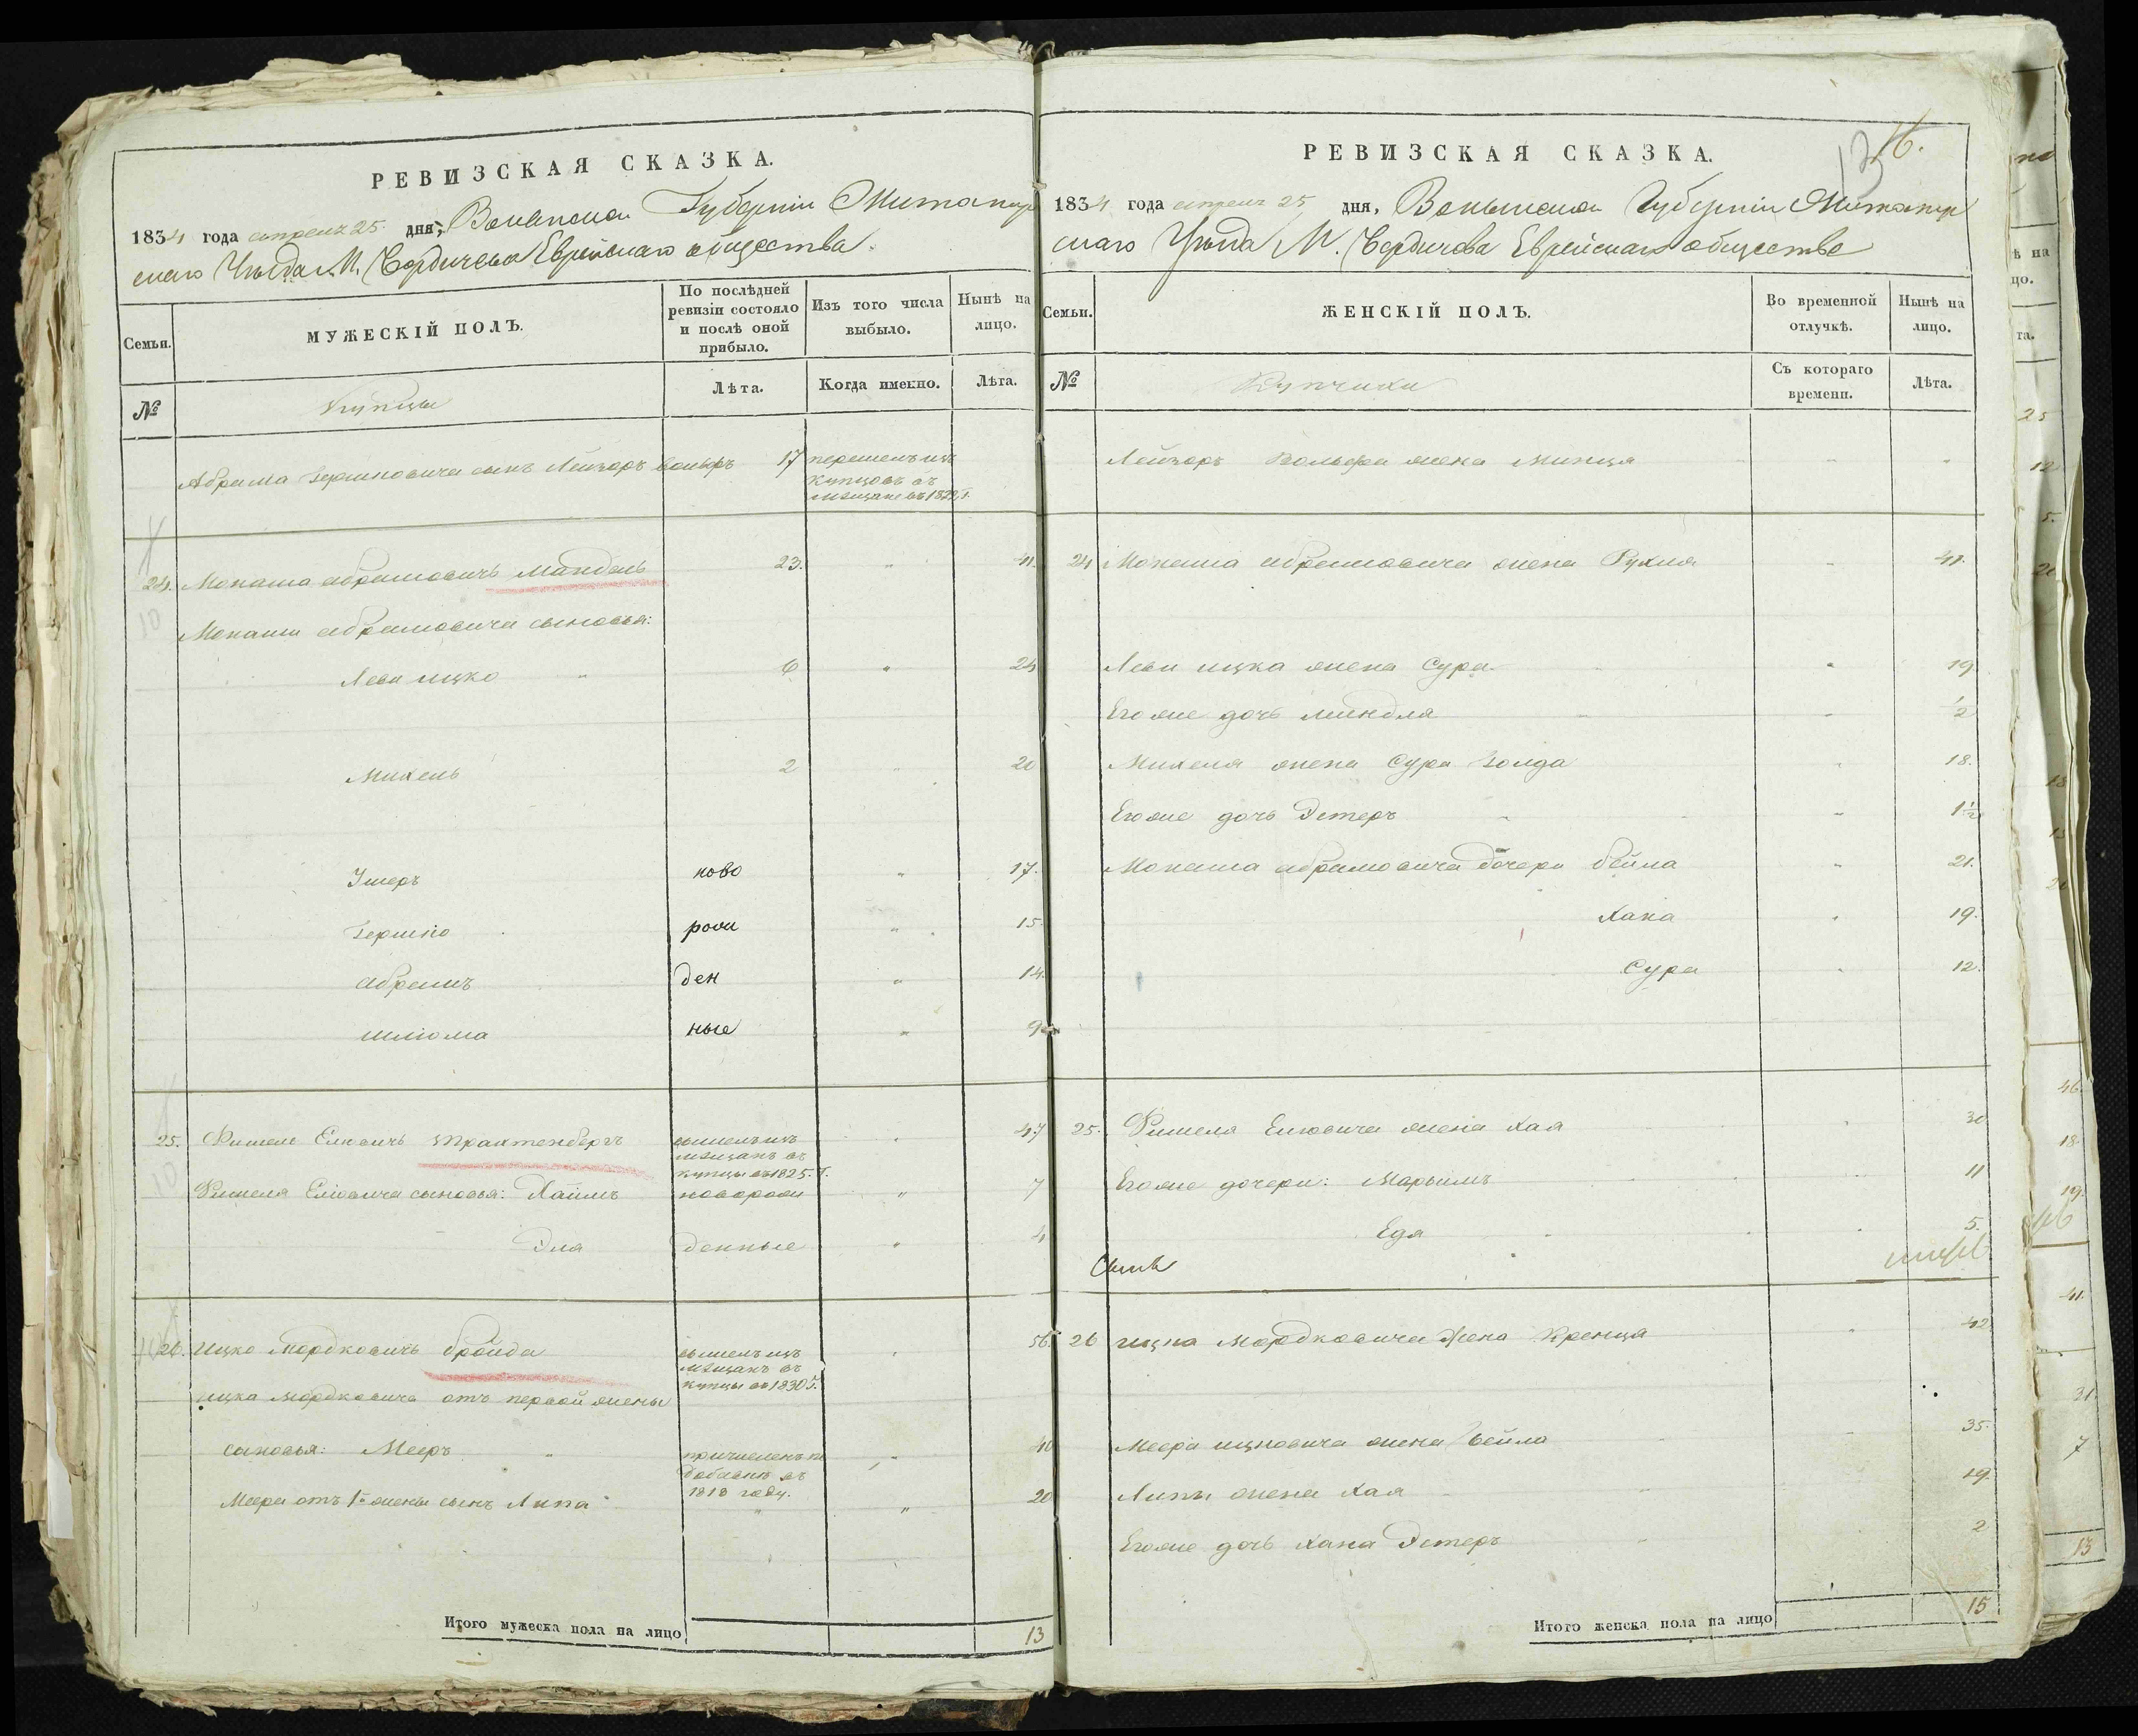 РЕВИЗСКАЯ СКАЗКА.
1834 года апреля 25 дня, Волынской Губернии Житомир
скаго Уѣзда М. Бердичева Еврейскаго общества.
Семьи.
МУЖЕСКІЙ ПОЛЪ.
По послѣдней ревизіи состояло и послѣ оной прибыло.
Изъ того числа выбыло.
Нынѣ на лицо.
№
Купцы
Лѣта.
Когда именно.
Лѣта.
Абрама Гершковича сынъ Лейзоръ Вольфъ 17 перешелъ изъ
купцовъ въ
мѣщане въ
24. Монаша Абрамовичъ Мандель 23. 41.
Монаши Абрамовича сыновья:
Леви Ицко 6 24
Михель 2 20
Ушеръ ново 17.
Гершко рож 15
Абрамъ ден 14.
Шлиома ные 9
25. Фишель Елiовичъ Трахтенбергъ вышелъ изъ 47
мѣщанъ въ
купцы въ 1825. г.
Фишеля Елiовича сыновья: Хаимъ новорож 7
Эля денные 4
26. Ицко Мордковичъ Бройда вышелъ изъ 56.
мѣщанъ въ
купцы въ 1830 г.
Ицка Мордковича отъ первой жены
сыновья: Мееръ причисленъ по 40
добавкѣ въ
1818 году.
Меера отъ 1й жены сынъ Липа 20
Итого мужеска пола на лицо 13
16.
13
РЕВИЗСКАЯ СКАЗКА.
1834 года апреля 25 дня, Волынской Губернии Житомир
скаго Уѣзда М. Бердичева Еврейскаго общества
Семьи.
ЖЕНСКІЙ ПОЛЪ.
Во временной отлучкѣ.
Нынѣ на лицо.
№
Купчихи
Съ котораго времени.
Лѣта.
Лейзора Вольфа жена Минця
24 Монаша Абрамовича жена Рухля 41.
Леви Ицка жена Сура 19
Его же дочь Миндля 1/2
Михеля жена Сура Голда 18.
Его же дочь Эстеръ 1 1/2
Монаша Абрамовича дочери Бейла 21.
Хана 19.
Сура 12.
25. Фишеля Елiовича жена Хая 30
Его же дочери: Марьимъ 11
Едя 5.
26 Ицка Мордковича жена Кренця 42
Меера Ицковича жена Бейла 35.
Липы жена Хая 19.
Его же дочь Хана Эстеръ 2
Итого женска пола на лицо 15